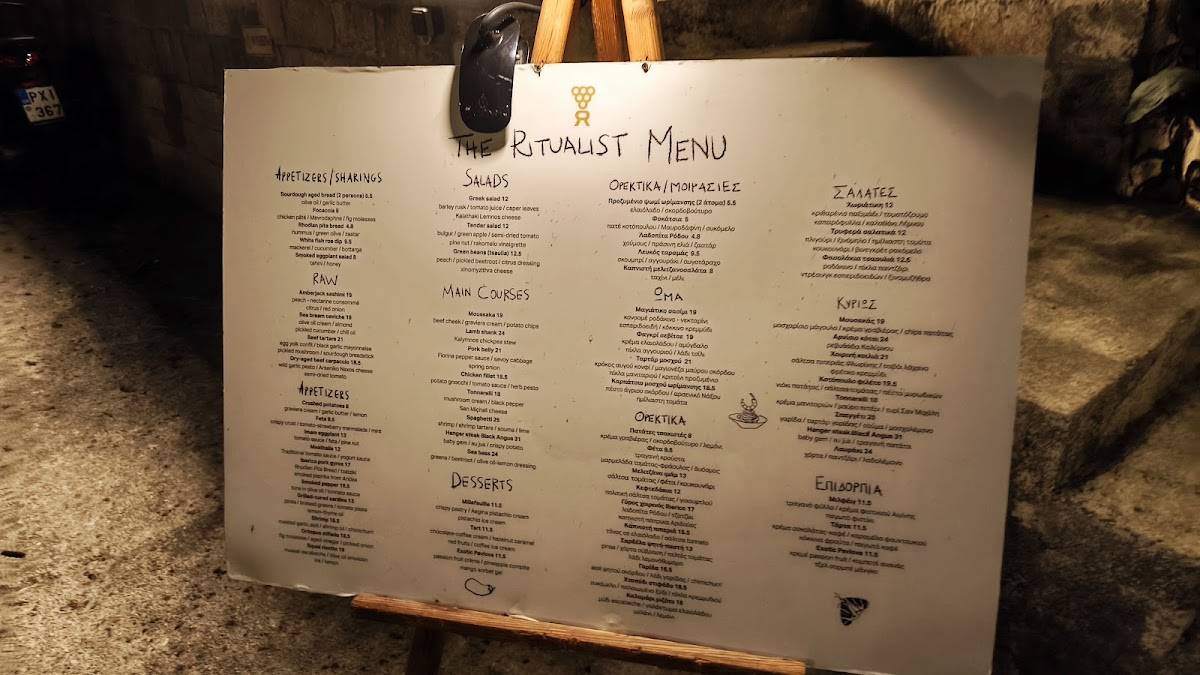 PXI
367
THE RITUALIST MENU
APPETIZERS/SHARINGS
Sourdough aged bread (2 persons) 5.5
olive oil / garlic butter
Focaccia 5
chicken pâté / Mavrodaphne / fig molasses
Rhodian pita bread 4.8
hummus / green olive / zaatar
White fish roe dip 9.5
mackerel / cucumber / bottarga
Smoked eggplant salad 8
tahini / honey
RAW
Amberjack sashimi 19
peach - nectarine consommé
citrus / red onion
Sea bream ceviche 19
olive oil cream / almond
pickled cucumber / chili oil
Beef tartare 21
egg yolk confit / black garlic mayonnaise
pickled mushroom / sourdough breadstick
Dry-aged beef carpaccio 18.5
wild garlic pesto / Arseniko Naxos cheese
semi-dried tomato
APPETIZERS
Crushed potatoes 8
graviera cream / garlic butter / lemon
Feta 9.5
crispy crust / tomato-strawberry marmalade / mint
Imam eggplant 13
tomato sauce / feta / pine nut
Meatballs 12
Traditional tomato sauce / yogurt sauce
Iberico pork gyros 17
Rhodian Pita Bread / tzatziki
smoked paprika from Aridea
Smoked pepper 18.5
tuna in olive oil / tomato sauce
Grilled cured sardine 13
pinsa / braised greens / tomato paste
lemon-thyme oil
Shrimp 18.5
roasted garlic aioli / shrimp oil / chimichurri
Octopus stifado 18.5
fig tomatade / aged vinegar / pickled onion
Squid risotto 18
ink / lemon
SALADS
Greek salad 12
barley rusk / tomato juice / caper leaves
Kalathaki Lemnos cheese
Tender salad 12
bulgur / green apple / semi-dried tomato
pine nut / rakomelo vinaigrette
Green beans (tsaulia) 12.5
peach / pickled beetroot / citrus dressing
xinomyzithra cheese
MAIN COURSES
Moussaka 19
beef cheek / graviera cream / potato chips
Lamb shank 24
Kalymnos chickpea stew
Pork belly 21
Florina pepper sauce / savoy cabbage
spring onion
Chicken fillet 19.5
potato gnocchi / tomato sauce / herb pesto
Tonnarelli 18
mushroom cream / black pepper
San Michali cheese
Spaghetti 25
shrimp / shrimp tartare / souma / lime
Hanger steak Black Angus 31
baby gem / au jus / crispy potato
Sea bass 24
greens / beetroot / olive oil-lemon dressing
DESSERTS
Millefeuille 11.5
crispy pastry / Aegina pistachio cream
pistachio ice cream
Tart 11.5
chocolate-coffee cream / hazelnut caramel
red fruits / coffee ice cream
Exotic Pavlova 11.5
passion fruit crème / pineapple compote
mango sorbet gel
ΟΡΕΚΤΙΚΑ/ΜΟΙΡΑΣΙΕΣ
Προζυμένιο ψωμί ωρίμανσης (2 άτομα) 5.5
ελαιόλαδο / σκορδοβούτυρο
Φοκάτσια 5
πατέ κοτόπουλου / Μαυροδάφνη / συκόμελο
Λαδοπίτα Ρόδου 4.8
χούμους / πράσινη ελιά / ζαατάρ
Λευκός ταραμάς 9.5
σκουμπρί / αγγουράκι / αυγοτάραχο
Καπνιστή μελιτζανοσαλάτα 8
ταχίνι / μέλι
ΩΜΑ
Μαγιάτικο σασίμι 19
κονσομέ ροδάκινο - νεκταρίνι
εσπεριδοειδή / κόκκινο κρεμμύδι
Φαγκρί σεβίτσε 19
κρέμα ελαιολάδου / αμύγδαλο
πίκλα αγγουριού / λάδι τσίλι
Ταρτάρ μοσχού 21
κρόκος αυγού κονφί / μαγιονέζα μαύρου σκόρδου
πίκλα μανιταριού / κριτσίνι προζυμένιο
Καρπάτσιο μοσχού ωρίμανσης 18.5
πέστο άγριου σκόρδου / αρσενικό Νάξου
ημίλιαστη τομάτα
ΟΡΕΚΤΙΚΑ
Πατάτες τσακιστές 8
κρέμα γραβιέρας / σκορδοβούτυρο / λεμόνι
Φέτα 9.5
τραγανή κρούστα
μαρμελάδα τομάτας-φράουλας / δυόσμος
Μελιτζάνα ιμάμ 13
σάλτσα τομάτας / φέτα / κουκουνάρι
Κεφτεδάκια 12
πολίτικη σάλτσα τομάτας / γιαουρτλού
Γύρος χοιρινός Iberico 17
λαδοπίτα Ρόδου / τζατζίκι
καπνιστή πάπρικα Αριδαίας
Καπνιστή πιπεριά 18.5
τόνος σε ελαιόλαδο / σάλτσα τομάτα
Σαρδέλα ψητή-παστή 13
pinsa / χόρτα σωτέ / πελτές τομάτας
λάδι λεμονοθύμαρου
Γαρίδα 18.5
aioli ψητού σκόρδου / λάδι γαρίδας / chimichurri
Χταπόδι στιφάδο 18.5
Καλαμάρι ριζότο 18
μελάνι / λεμόνι
ΣΑΛΑΤΕΣ
Χωριάτικη 12
κριθαρένιο παξιμάδι / τοματόζουμο
καπαρόφυλλα / καλαθάκι Λήμνου
Τρυφερά σαλατικά 12
πλιγούρι / ξινόμηλο / ημίλιαστη τομάτα
κουκουνάρι / βινεγκρέτ ρακόμελο
Φασολάκια τσαουλιά 12.5
ροδάκινο / πίκλα παντζάρι
ντρέσινγκ εσπεριδοειδών / ξινομυζήθρα
ΚΥΡΙΩΣ
Μουσακάς 19
μοσχαρίσιο μάγουλο / κρέμα γραβιέρας / chips πατάτας
Αρνίσιο κότσι 24
ρεβυθάδα Καλύμνου
Χοιρινή κοιλιά 21
σάλτσα πιπεριάς Φλωρίνης / σαβόι λάχανο
φρέσκο κρεμμύδι
Κοτόπουλο φιλέτο 19.5
νιόκι πατάτας / σάλτσα τομάτας / πέστο μυρωδικών
Tonnarelli 18
κρέμα μανιταριών / μαύρο πιπέρι / τυρί Σαν Μιχάλη
Σπαγγέτι 25
γαρίδα / ταρτάρ γαρίδας / σούμα / μοσχολέμονο
Hanger steak Black Angus 31
baby gem / au jus / τραγανή πατάτα
Λαυράκι 24
χόρτα / παντζάρι / λαδολέμονο
ΕΠΙΔΟΡΠΙΑ
Μιλφέιγ 11.5
τραγανό φύλλο / κρέμα φιστικιού Αιγίνης
παγωτό φιστίκι
Τάρτα 11.5
κρέμα σοκολάτας-καφέ / καραμέλα φουντουκιού
κόκκινα φρούτα / παγωτό καφέ
Exotic Pavlova 11.5
κρεμέ passion fruit / κομπότ ανανάς
τζελ σορμπέ μάνγκο